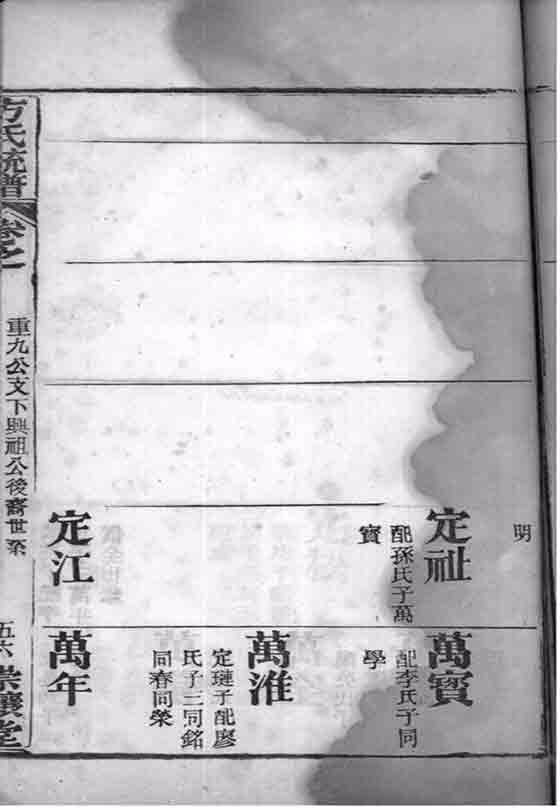 明
定祉
配孫氏子萬
寳
定江
萬寳
配李氏子同
學
萬淮
定璉子配廖
氏子三同銘
同春同榮
萬年
方氏統譜
卷之一
重九公支下興祖公後裔世系
五六
堂